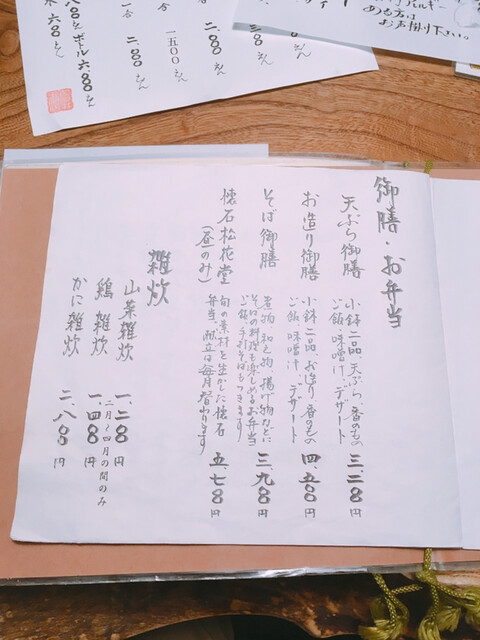 アレルギー
お声掛け下さい。
御膳・お弁当
天ぷら御膳
小鉢二品、天ぷら、香のもの
ご飯、味噌汁、デザート
三、二〇〇円
お造り御膳
小鉢二品、お造り、香のもの
ご飯、味噌汁、デザート
四、五〇〇円
そば御膳
煮物、和え物、揚げ物などに
そばの料理も楽しめるお弁当
ご飯、手打そばもつきます
三、九〇〇円
懐石松花堂
(昼のみ)
旬の素材を生かした懐石
弁当、献立は毎月替わります
五、七〇〇円
雑炊
山菜雑炊
一、二〇〇円
二月〜四月の間のみ
鶏雑炊
一、四〇〇円
かに雑炊
二、八〇〇円